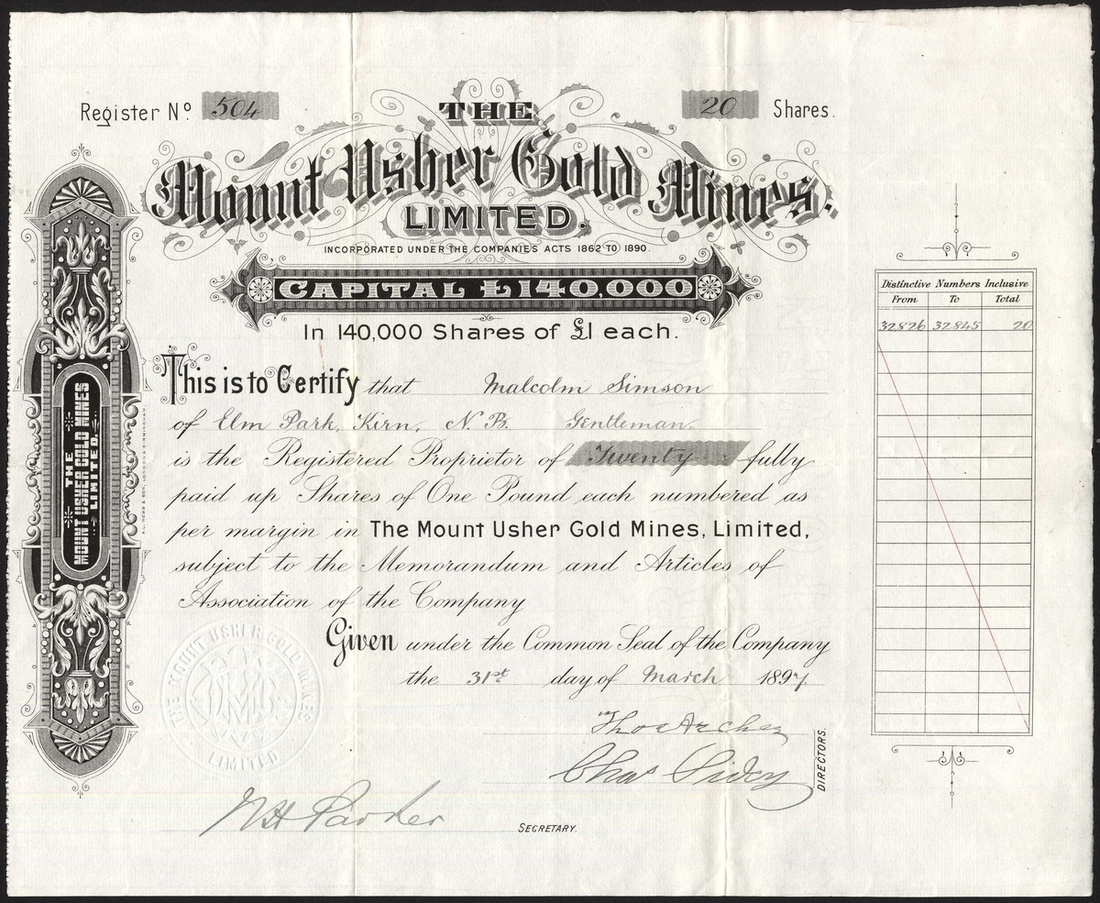 Register No. 504
20 Shares.
THE
Mount Usher Gold Mines.
LIMITED.
INCORPORATED UNDER THE COMPANIES ACTS 1862 TO 1890.
CAPITAL £140,000
In 140,000 Shares of £1 each.
This is to Certify that Malcolm Simson
of Elm Park, Kirn, N.B. Gentleman.
is the Registered Proprietor of Twenty fully
paid up Shares of One Pound each numbered as
per margin in The Mount Usher Gold Mines, Limited,
subject to the Memorandum and Articles of
Association of the Company
Given under the Common Seal of the Company
the 31st day of March 1897.
Thos Archer
Chas
DIRECTORS.
W H Parker
SECRETARY.
THE
MOUNT USHER GOLD MINES
LIMITED.
THE MOUNT USHER GOLD MINES
LIMITED
Distinctive Numbers Inclusive
From To Total
32826 32845 20